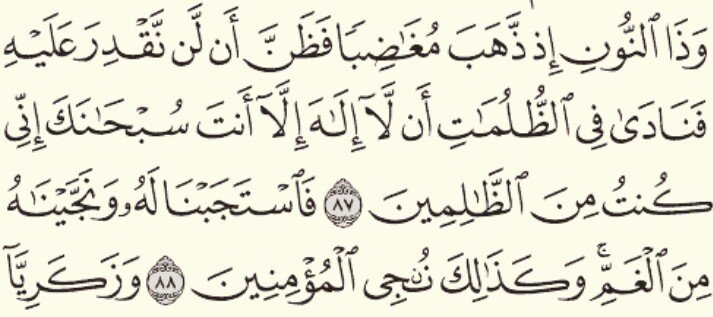 وَذَا ٱلنُّونِ إِذ ذَّهَبَ مُغَٰضِبًا فَظَنَّ أَن لَّن نَّقْدِرَ عَلَيْهِ
فَنَادَىٰ فِى ٱلظُّلُمَٰتِ أَن لَّآ إِلَٰهَ إِلَّآ أَنتَ سُبْحَٰنَكَ إِنِّى
كُنتُ مِنَ ٱلظَّٰلِمِينَ ٨٧ فَٱسْتَجَبْنَا لَهُۥ وَنَجَّيْنَٰهُ
مِنَ ٱلْغَمِّ ۚ وَكَذَٰلِكَ نُۨجِى ٱلْمُؤْمِنِينَ ٨٨ وَزَكَرِيَّآ